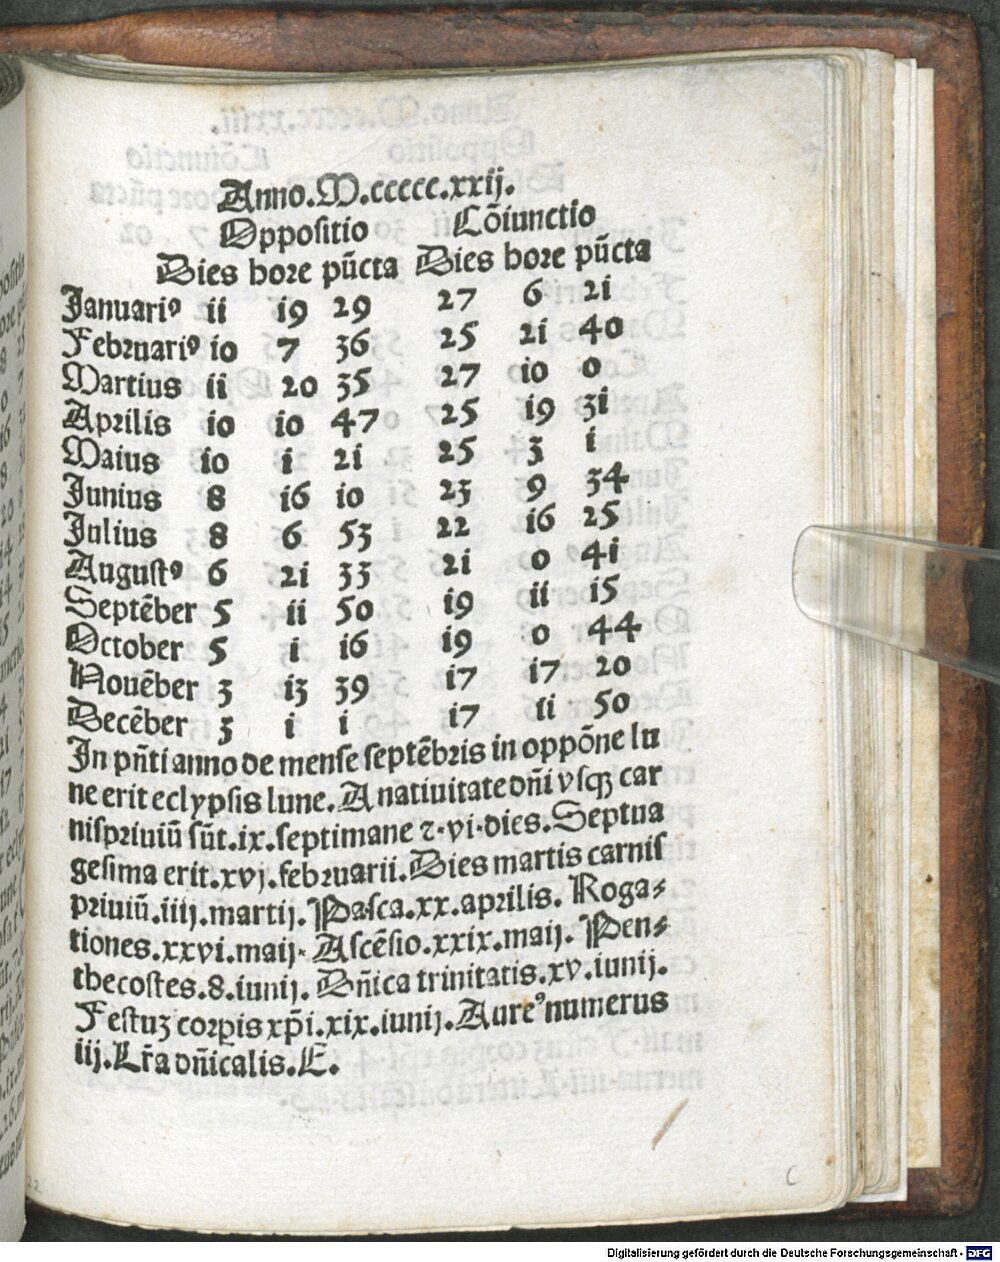 Anno.M.ccccc.xxij.
Oppositio Cõiunctio
Dies hore pũcta Dies hore pũcta
Januariꝰ ii i9 29 27 6 2i
Februariꝰ io 7 36 25 2i 40
Martius ii 20 35 27 io 0
Aprilis io io 47 25 i9 3i
Maius io i 2i 25 3 i
Junius 8 i6 io 23 9 34
Julius 8 6 53 22 i6 25
Augustꝰ 6 2i 33 2i 0 4i
Septẽber 5 ii 50 i9 ii i5
October 5 i i6 i9 0 44
Nouẽber 3 i3 39 i7 i7 20
Decẽber 3 i i i7 ii 50
In pñti anno de mense septẽbris in oppõne lu
ne erit eclypsis lune. A natiuitate dñi vsqꝫ car
nispriuiũ sũt.ix.septimane ⁊·vi·dies.Septua
gesima erit.xvj.februarii.Dies martis carnis
priuiũ.iiij.martij.Pasca.xx.aprilis. Roga⸗
tiones.xxvi.maij· Ascẽsio.xxix.maij. Pen⸗
thecostes.8.iunij. Dñica trinitatis.xv.iunij.
Festuꝫ corpis xp̃i.xix.iunij.Aureꝰ numerus
iij.Lr̃a dñicalis.E.
22
C
Digitalisierung gefördert durch die Deutsche Forschungsgemeinschaft - DFG